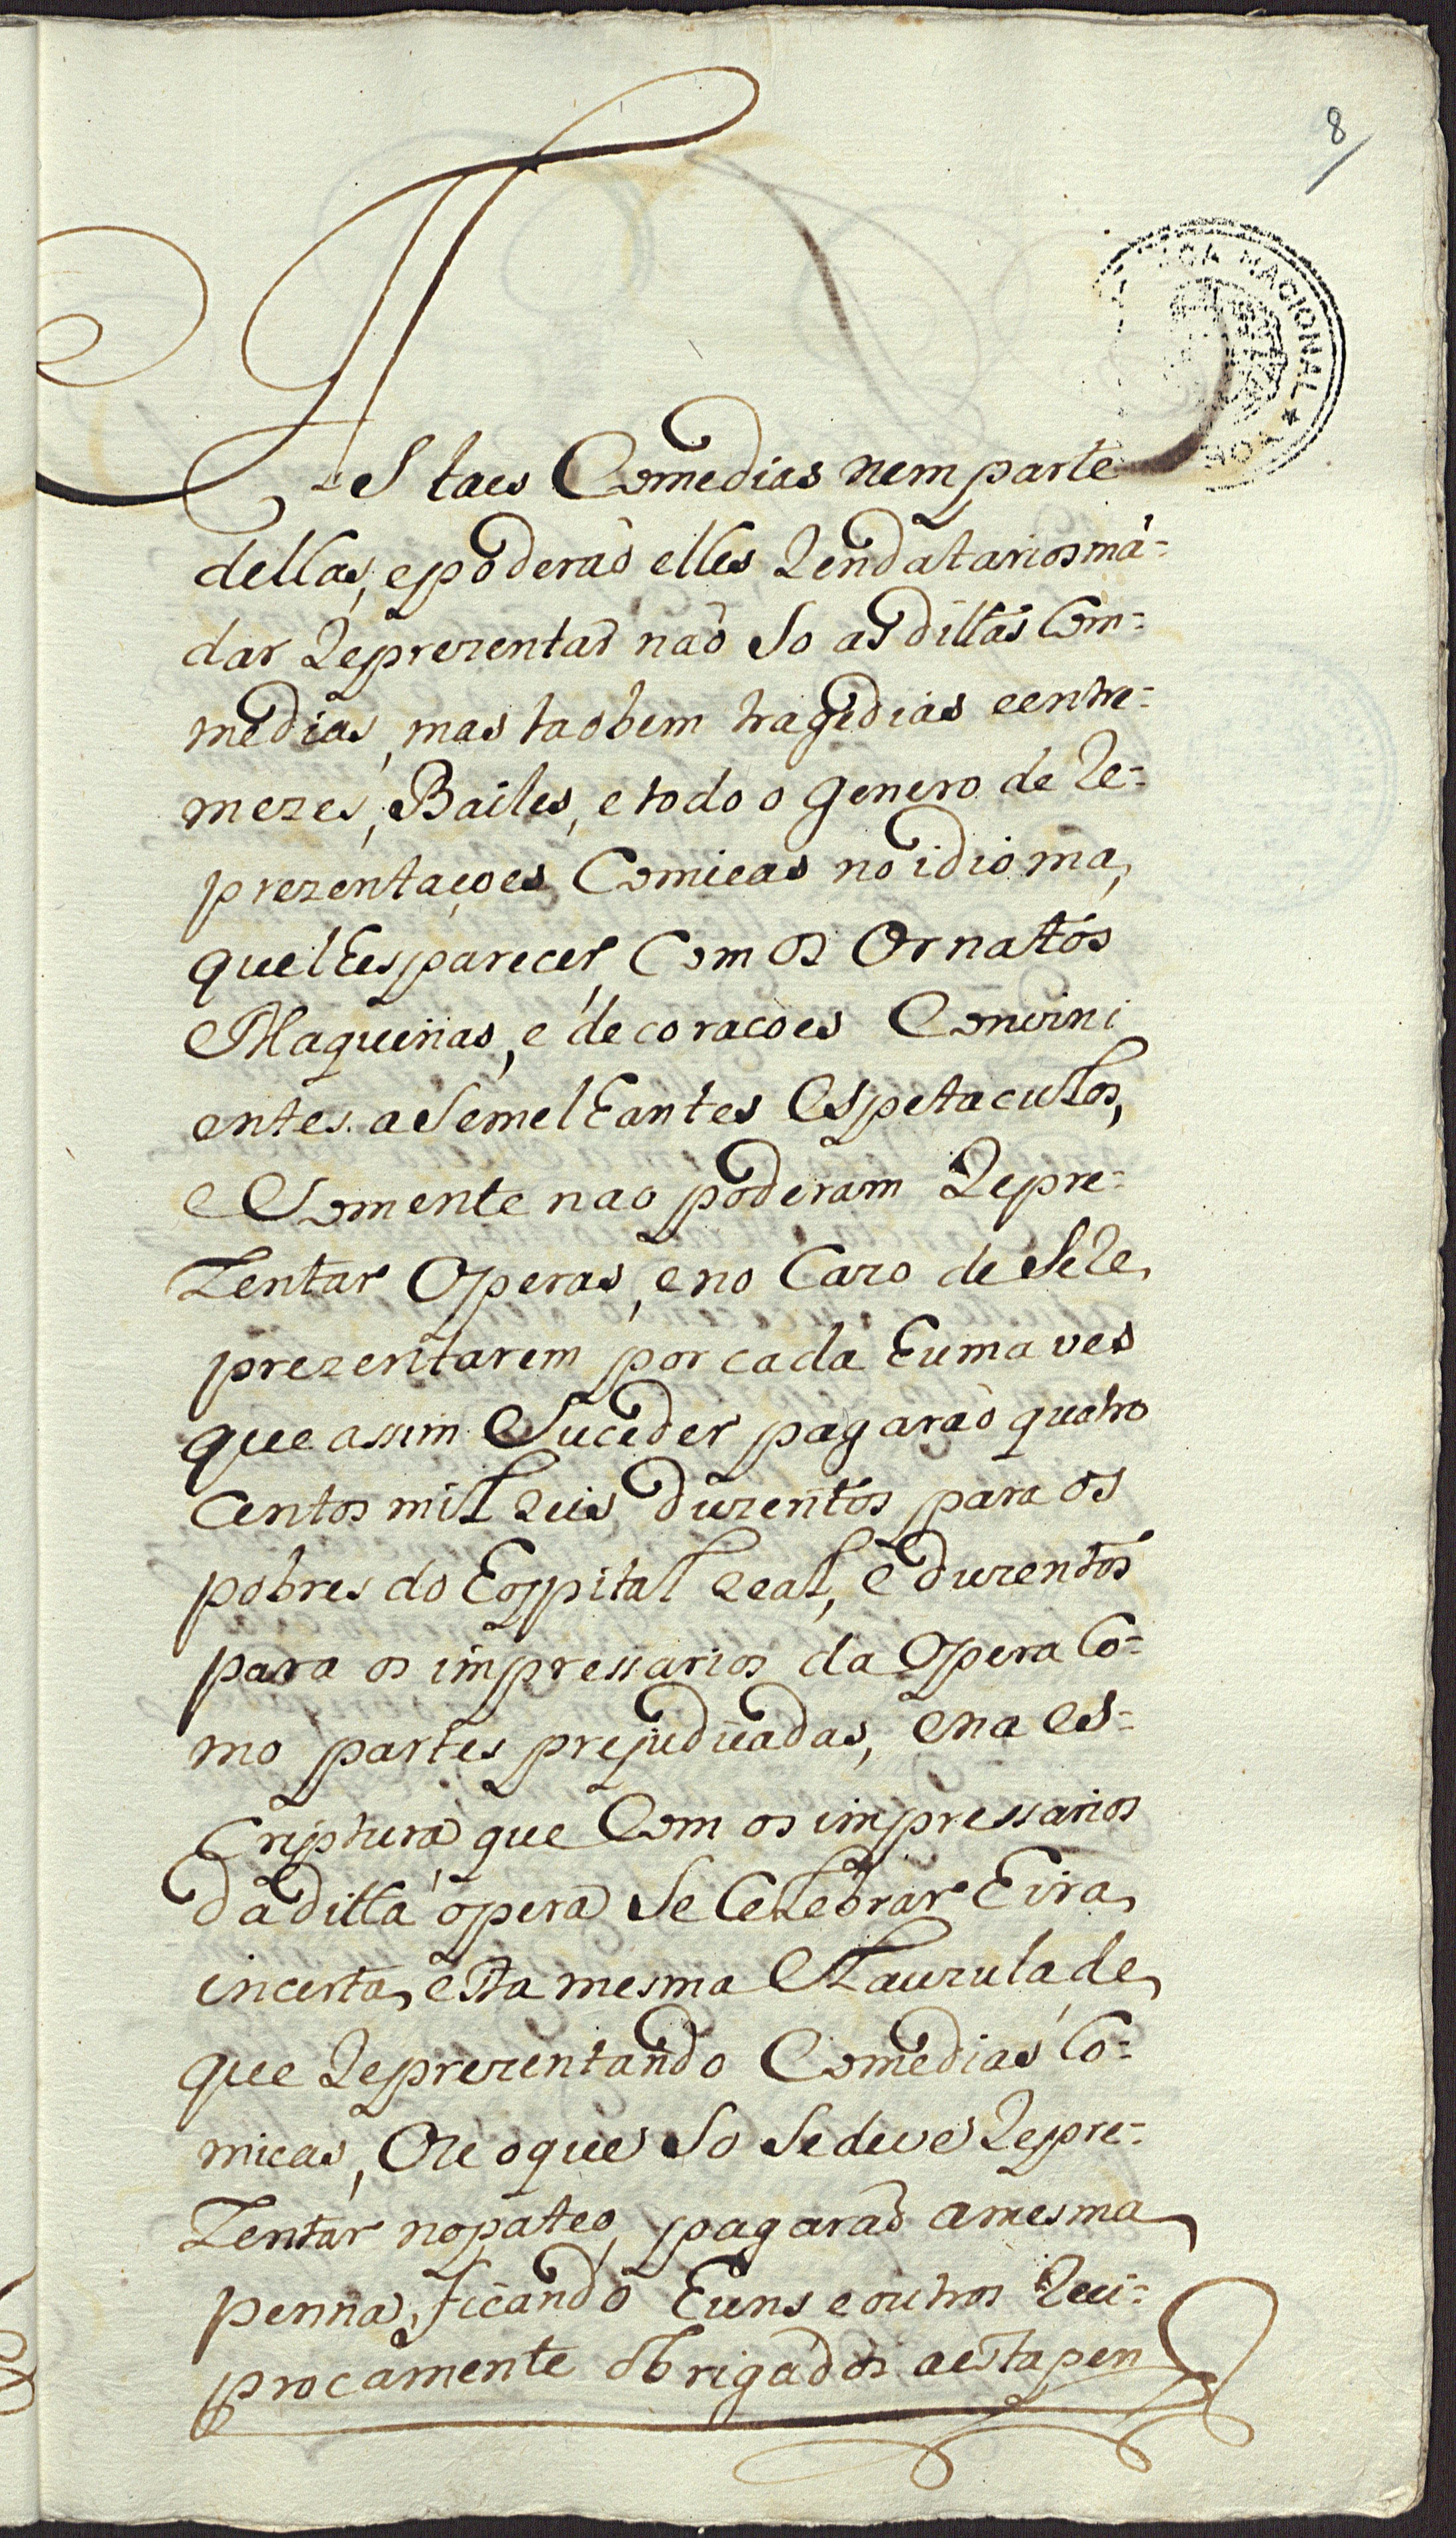 8
BIBLIOTECA NACIONAL
As taes Comedias nem parte
dellas, e poderaõ elles Rendatarios mã-
dar Reprezentar naõ So as dittas Com-
medias, mas taobem tragedias e entre-
mezes, Bailes, e todo o genero de Re-
prezentaçoes Comicas no idioma,
que lhes parecer, Com os Ornatos
Maquinas, e decoracoes Convini
entes a Semelhantes Espetaculos,
e Somente nao poderam Repre-
Zentar Operas, e no Cazo de Se Re,
prezentarem por cada huma ves
que assim Suceder pagaraõ quatro
Centos mil Reis duzentos para os
pobres do hospital Real, e duzentos
para os impressarios da Opera Co-
mo partes prejudicadas, e na es-
Criptura que Com os impressarios
da ditta opera Se Celebrar hira,
incerta, esta mesma Clauzula de,
que Reprezentando Comedias Co-
micas, Ou o que So Se deve Repre-
Zentar no pateo, pagaraõ a mesma
penna, ficando huns e outros Reci-
procamente obrigados a esta pen